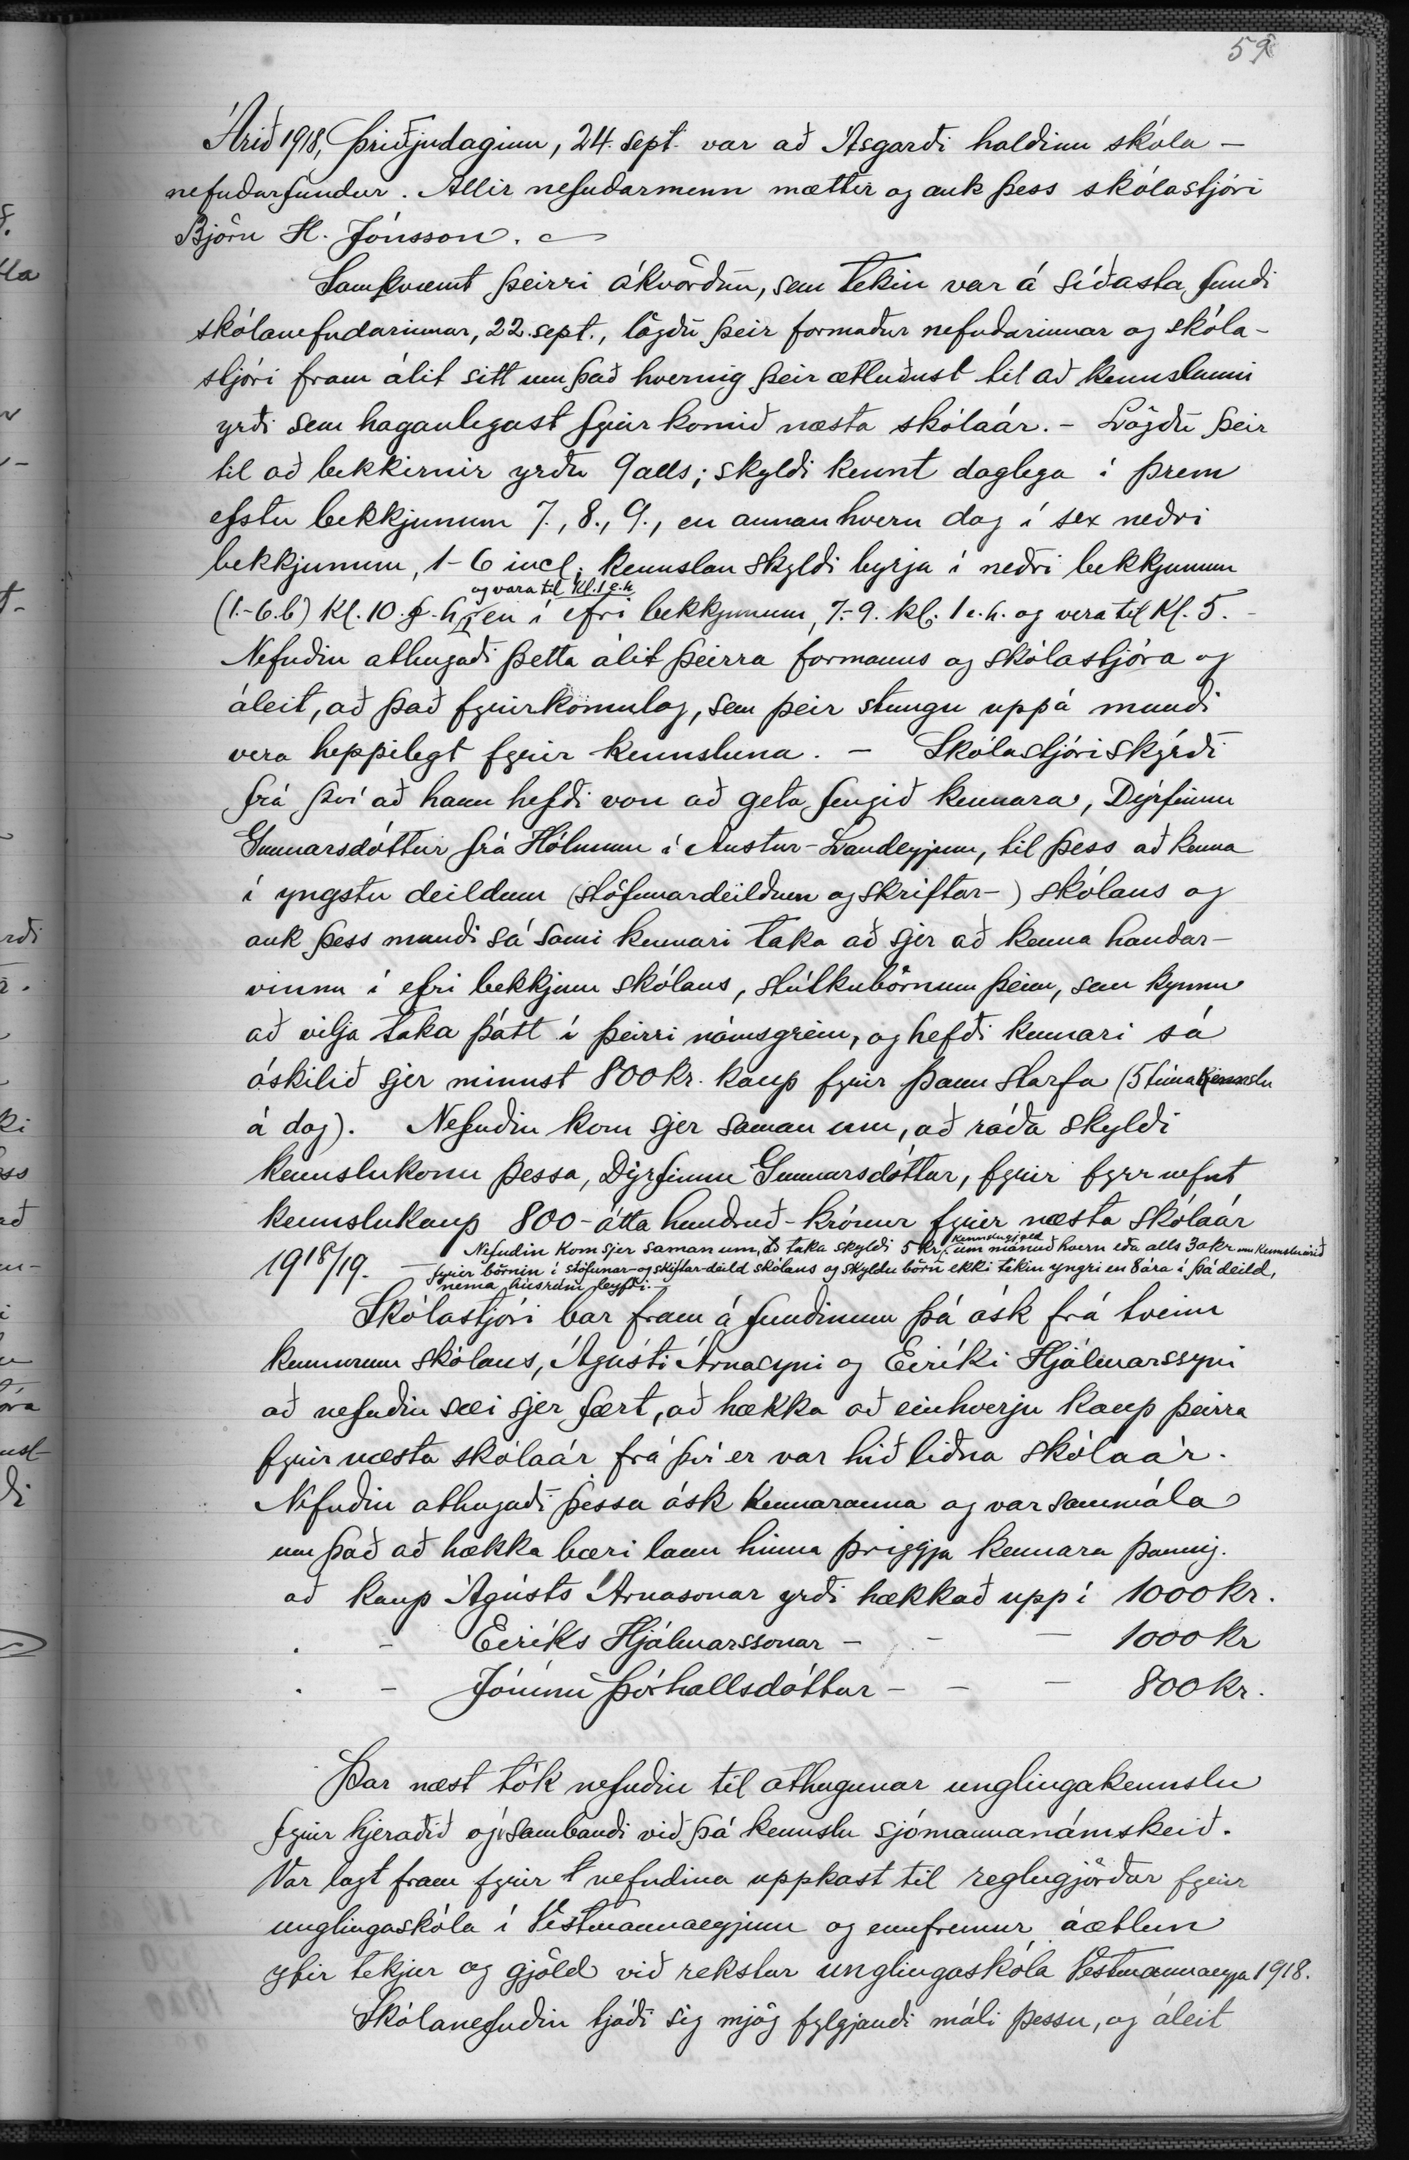 59
Árið 1918, Þriðjudaginn, 24. sept. var að Ásgarði haldinn skóla-
nefndarfundur. Allir nefndarmenn mættir og auk þess skólastjóri
Björn H. Jónsson.
Samkvæmt þeirri ákvörðun, sem tekin var á síðasta fundi
skólanefndarinnar, 22. sept., lögðu þeir formaður nefndarinnar og skóla-
stjóri fram álit sitt um það hvernig þeir ætluðust til að kennslunni
yrði sem haganlegast fyrir komið næsta skólaár. - Lögðu þeir
til að bekkirnir yrðu 9 alls; skyldi kennt daglega í þrem
efstu bekkjunum 7., 8., 9., en annanhvern dag í sex neðri
bekkjunum, 1-6 incl. Kennslan skyldi byrja í neðri bekkjunum
og vara til Kl. 1 e.h.
(1.-6.b) Kl. 10. f.h. en í efri bekkjunum, 7.-9. kl. 1 e.h. og vera til Kl. 5. -
Nefndin athugaði þetta álit þeirra formanns og skólastjóra og
áleit, að það fyrirkomulag, sem þeir stungu uppá mundi
vera heppilegt fyrir kennsluna. - Skólastjóri skýrði
frá því að hann hefði von að geta fengið kennara, Dýrfinnu
Gunnarsdóttur frá Hólmum í Austur-Landeyjum, til þess að kenna
í yngstu deildum (stöfunardeildum og skriftar-) skólans og
auk þess mundi sá sami kennari taka að sjer að kenna handa-
vinnu í efri bekkjum skólans, stúlkubörnum þeim, sem kynnu
að vilja taka þátt í þeirri námsgrein, og hefði kennari sá
áskilið sjer minnst 800 kr. kaup fyrir þann starfa (5 tíma kennslu
á dag). Nefndin kom sjer saman um, að ráða skyldi
kennslukonu þessa, Dýrfinnu Gunnarsdóttur, fyrir fyrr nefnt
kennslukaup 800 - átta hundruð - krónur fyrir næsta skólaár
1918/19. - Nefndin kom sjer saman um, að taka skyldi 5 kr. kennslugjald um mánuð hvern eða alls 30 kr um kennsluárið
fyrir börnin í stöfunar- og skriftar-deild skólans og skyldu börn ekki tekin yngri en 8 ára í þá deild,
nema húsrúm leyfði. -
Skólastjóri bar fram á fundinum þá ósk frá tveim
kennurum skólans, Ágústi Árnasyni og Eiríki Hjálmarssyni
að nefndin sæi sjer fært, að hækka að einhverju kaup þeirra
fyrir næsta skólaár frá því er var hið liðna skólaár.
Nefndin athugaði þessa ósk kennaranna og var sammála
um það að hækka bæri laun hinna þriggja kennara þannig.
að kaup Ágústs Árnasonar yrði hækkað upp í 1000 kr.
. - Eiríks Hjálmarssonar - - - 1000 kr
. - Jónínu Þórhallsdóttur - - - 800 kr.
Þar næst tók nefndin til athugunar unglingakennslu
fyrir hjeraðið og í sambandi við þá kennslu sjómannanámskeið.
Var lagt fram fyrir nefndina uppkast til reglugjörðar fyrir
unglingaskóla í Vestmannaeyjum og ennfremur áætlun
yfir tekjur og gjöld við rekstur unglingaskóla Vestmannaeyja 1918.
Skólanefndin tjáði sig mjög fylgjandi máli þessu, og áleit